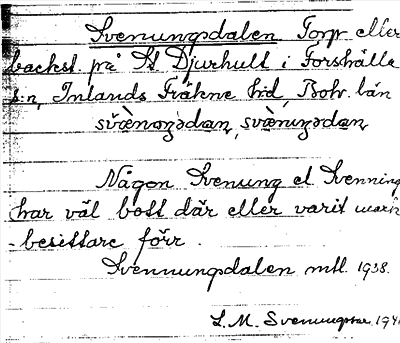 Svenungsdalen Torp eller
backst. på St Djurhult i Forshälla
s:n, Inlands Fräkne h:d, Boh. län
svæ̀nəŋsdan, svæ̀nuŋsdan
Någon Svenung el Svenning
har väl bott där eller varit mark
-besittare förr.
Svennungsdalen mtl. 1938.
S. M. Svenungsson 194